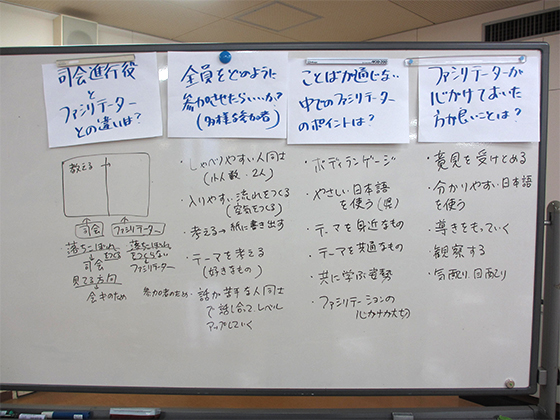 司会進行役
と
ファシリテーター
との違いは?
教える
司会
ファシリテーター
落ちこぼれをつくる
司会
落ちこぼれをつくらない
ファシリテーター
見てる方向
会社のため
参加者のため
全員をどのように
参加させたらいいか?
(多様な参加者)
・しゃべりやすい人同士
(小人数・2人)
・入りやすい流れをつくる
(空気をつくる)
・考える→紙に書き出す
・テーマを考える
(好きなもの)
・話が苦手な人同士
で話し合って、レベル
アップしていく
ことばが通じない
中でのファシリテーター
のポイントは?
・ボディランゲージ
・やさしい日本語
を使う
・テーマを身近なもの
・テーマを共通なもの
・共に学ぶ姿勢
・ファシリテーションの
心がけが大切
ファシリテーターが
心がけておいた
方が良いことは?
・意見を受けとめる
・分かりやすい日本語
を使う
・導きをもっていく
・観察する
・気配り、目配り